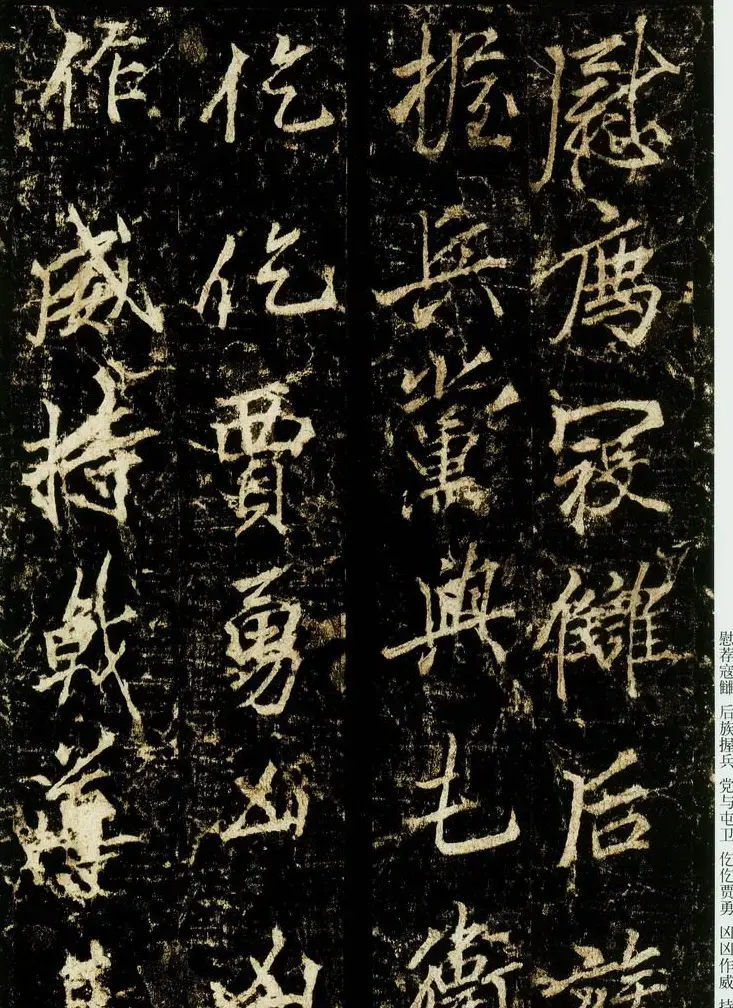 慰薦冦讎后族
握兵黨與屯衛
仡仡賈勇凶凶
作威持戟薄其
慰荐寇雠 后族握兵 党与屯卫 仡仡贾勇 凶凶作威 持